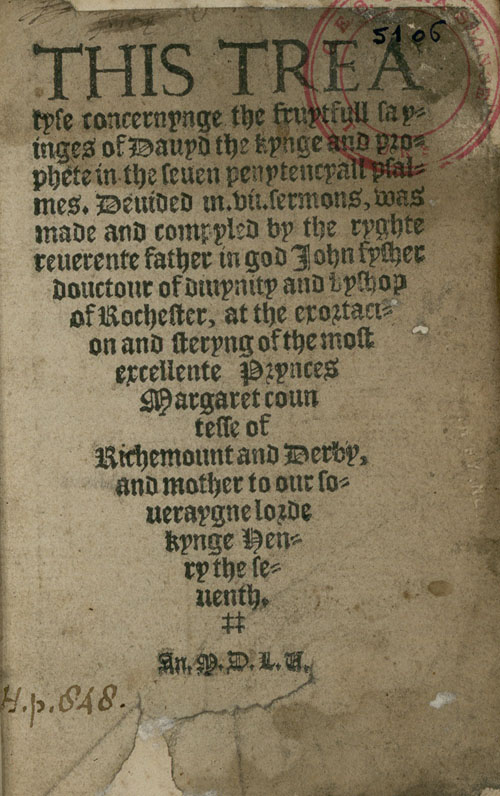 5106
THIS TREA
tyse concernynge the fruytfull say=
inges of Dauyd the kynge and pro=
phete in the seuen penytencyall psal=
mes. Deuided in .vii. sermons, was
made and compyled by the ryghte
reuerente father in god John fysher
douctour of diuynity and byshop
of Rochester, at the exortaci=
on and steryng of the most
excellente Prynces
Margaret coun
tesse of
Richemount and Derby,
and mother to our so=
ueraygne lorde
kynge Hen=
ry the se=
uenth.
An. M. D. L. V.
H.p.848.